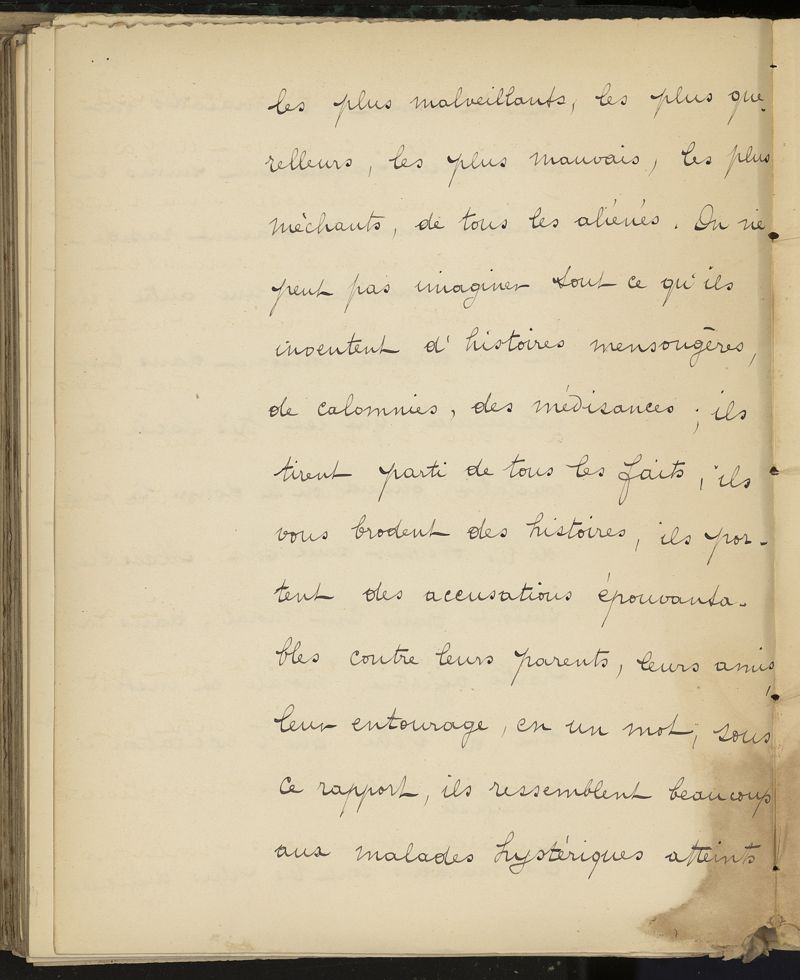 les plus malveillants, les plus que-
relleurs, les plus mauvais, les plus
méchants, de tous les aliénés. On ne
peut pas imaginer tout ce qu'ils
inventent d'histoires mensongères,
de calomnies, des médisances ; ils
tirent parti de tous les faits, ils
vous brodent des histoires, ils por-
tent des accusations épouvanta-
bles contre leurs parents, leurs amis,
leur entourage, en un mot, sous
ce rapport, ils ressemblent beaucoup
aux malades hystériques atteints